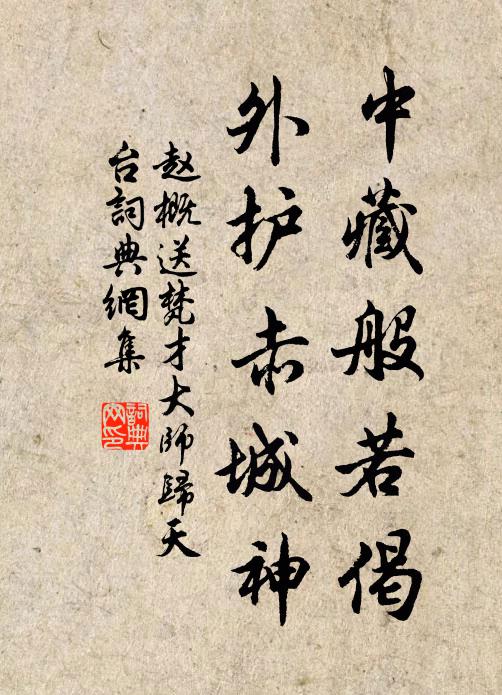 中藏般若偈
外护赤城神
赵概送梵才大师歸天
台詞典網集
詞典
网印